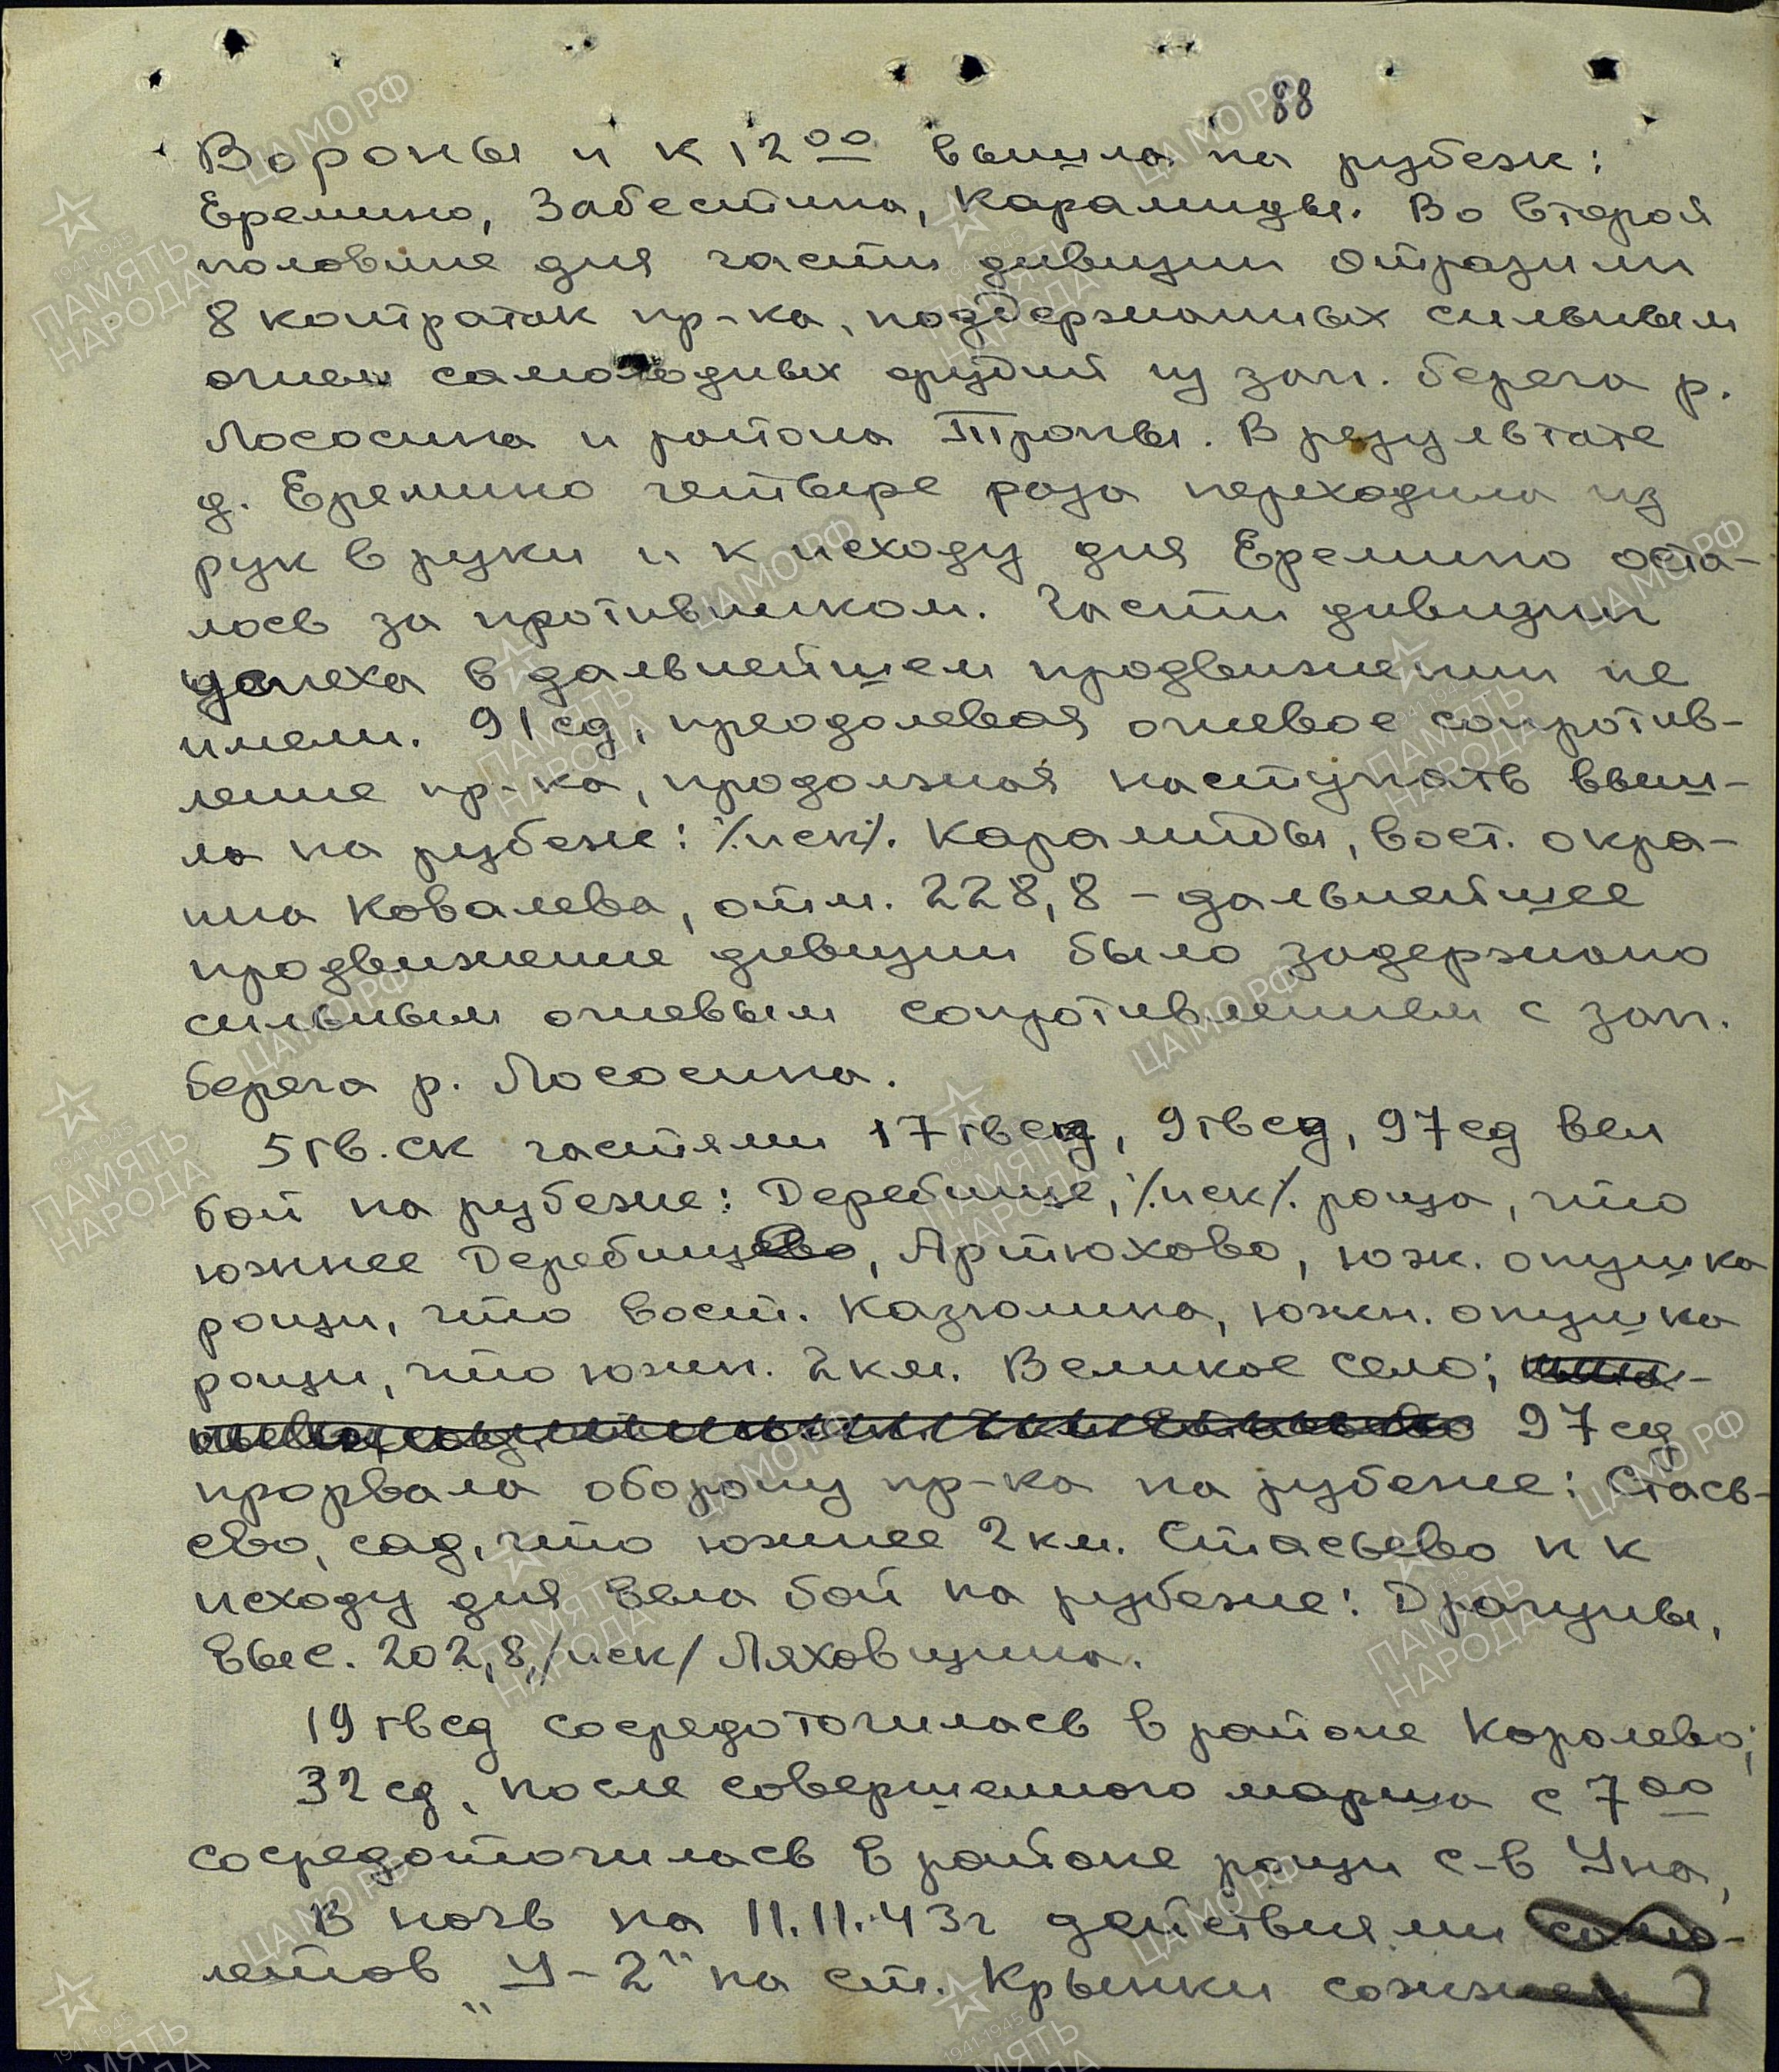 88
Вороны и к 12⁰⁰ вышла на рубеж:
Еремино, Забестина, Карамиды. Во второй
половине дня части дивизии отразили
8 контратак пр-ка, поддержанных сильным
огнем самоходных орудий из зап. берега р.
Лососина и района Троны. В результате
д. Еремино четыре раза переходила из
рук в руки и к исходу дня Еремино оста-
лось за противником. Части дивизии
успеха в дальнейшем продвижении не
имели. 91 сд, преодолевая огневое сопротив-
ление пр-ка, продолжая наступать выш-
ла на рубеж: /.иск/. Карамиды, вост. окра-
ина Ковалева, отм. 228,8 - дальнейшее
продвижение дивизии было задержано
сильным огневым сопротивлением с зап.
берега р. Лососина.
5 гв. ск частями 17 гвсд, 9 гвсд, 97 сд вел
бой на рубеже: Деребище, /.иск/. роща, что
южнее Деребище, Артюхово, юж. опушка
рощи, что вост. Казюлина, южн. опушка
рощи, что южн. 2 км. Великое село;
97 сд
прорвала оборону пр-ка на рубеже: Стась-
ево, сад, что южнее 2 км. Стасьево и к
исходу дня вела бой на рубеже: Драгуны,
выс. 202,8, /иск/ Ляховщина.
19 гвсд сосредоточилась в районе Королево;
32 сд, после совершенного марша с 7⁰⁰
сосредоточилась в районе рощи с-в Уна,
В ночь на 11.11.43г действиями само-
летов „У-2" на ст. Крынки сожжен
ЦАМО РФ
ПАМЯТЬ НАРОДА
1941-1945